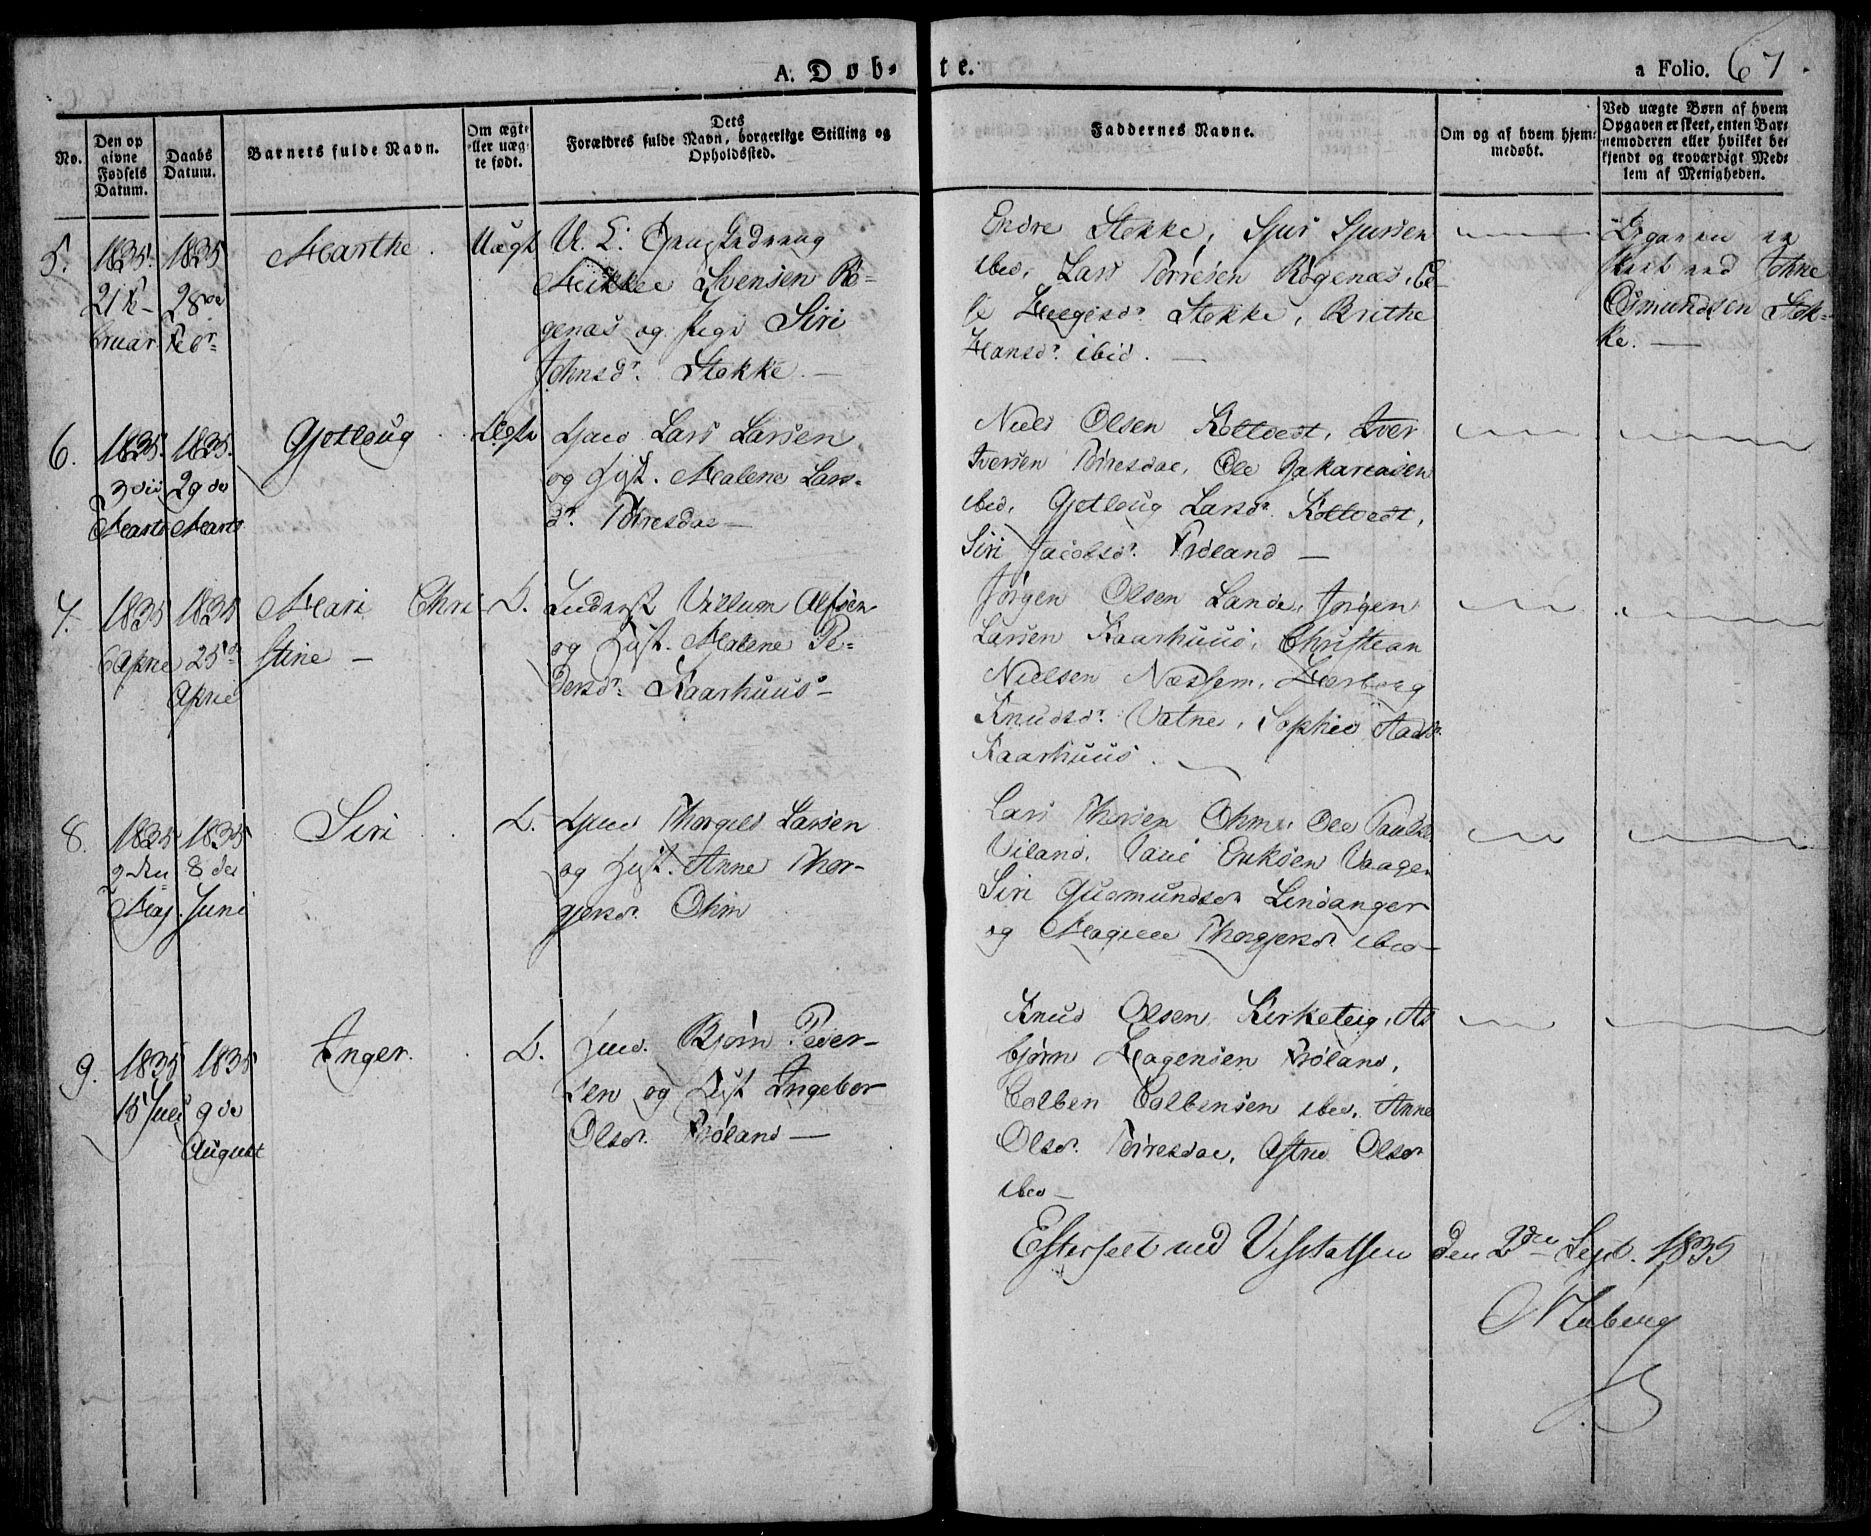 A. Døb- te.
a Folio. 67.
No.
Den op
givne
Fødsels
Datum.
Daabs
Datum.
Barnets fulde Navn.
Om ægte
eller uæg-
te født.
Dets
Forældres fulde Navn, borgerlige Stilling og
Opholdssted.
Faddernes Navne.
Om og af hvem hjem-
medøbt.
Ved uægte Børn af hvem
Opgaven er skeet, enten Bar-
nemoderen eller hvilket be-
kjendt og troværdigt Med-
lem af Menigheden.
5.
1835.
21 Fe-
bruar
1835
28de
Febr.
Marthe.
Uægt
Svensen Rø-
genæs og Pige Siri
Johnsdr. Stokke.
Endre Stokke, Sjur Sjursen
ibid, Lars Torresen Røgenæs,
Helgesdr. Stokke, Brithe
Hansdr. ibid.
Opgaven er
skeet ved Johne
Osmundsen Stok-
ke.
6.
1835.
3die
Marts
1835.
29de
Marts
Gjotloug
Ægte
Lars Larsen
og Hust. Malene Lars-
dr. Torresdal
Niels Olsen Koltvedt, Iver
Iversen Torresdal, Ole Zakariasen
ibid, Gjotloug Larsdr. Koltvedt,
Siri Jacobsdr. Frøland
7.
1835
6 April
1835
25de
April
Mari Chri-
stine
D.
Inderst Villum Olfsen
og Hust. Malene Pe-
dersdr. Kaarhuus
Jørgen Olsen Lande, Jørgen
Larsen Kaarhuus, Christian
Nielsen Næssem, Herborg
Knudsdr. Vatne, Sophie
Kaarhuus.
8.
1835
9den
Maj.
1835
8de
Juni
Siri
D.
Thorgils Larsen
og Hust. Anne Thor-
gjersdr. Ohm
Lars Thorsen Ohm, Ole
Viland, Paul Eriksen Vaage,
Siri Gudmundsdr. Lindanger
og Magille Thorgjersdr. ibid
9.
1835
15 Juli
1835
9de
August
Inger.
D.
Huusm. Bjørn Peder-
sen og Hust Ingebor
Olsdr. Frøland
Knud Olsen Kirketeig, As-
bjørn Hagensen Frøland,
Colben Colbensen ibid, Anne
Olsdr. Torresdal, Astrid Olsdr
ibid
Efterseet ved Visitatsen den 2den Sept. 1835